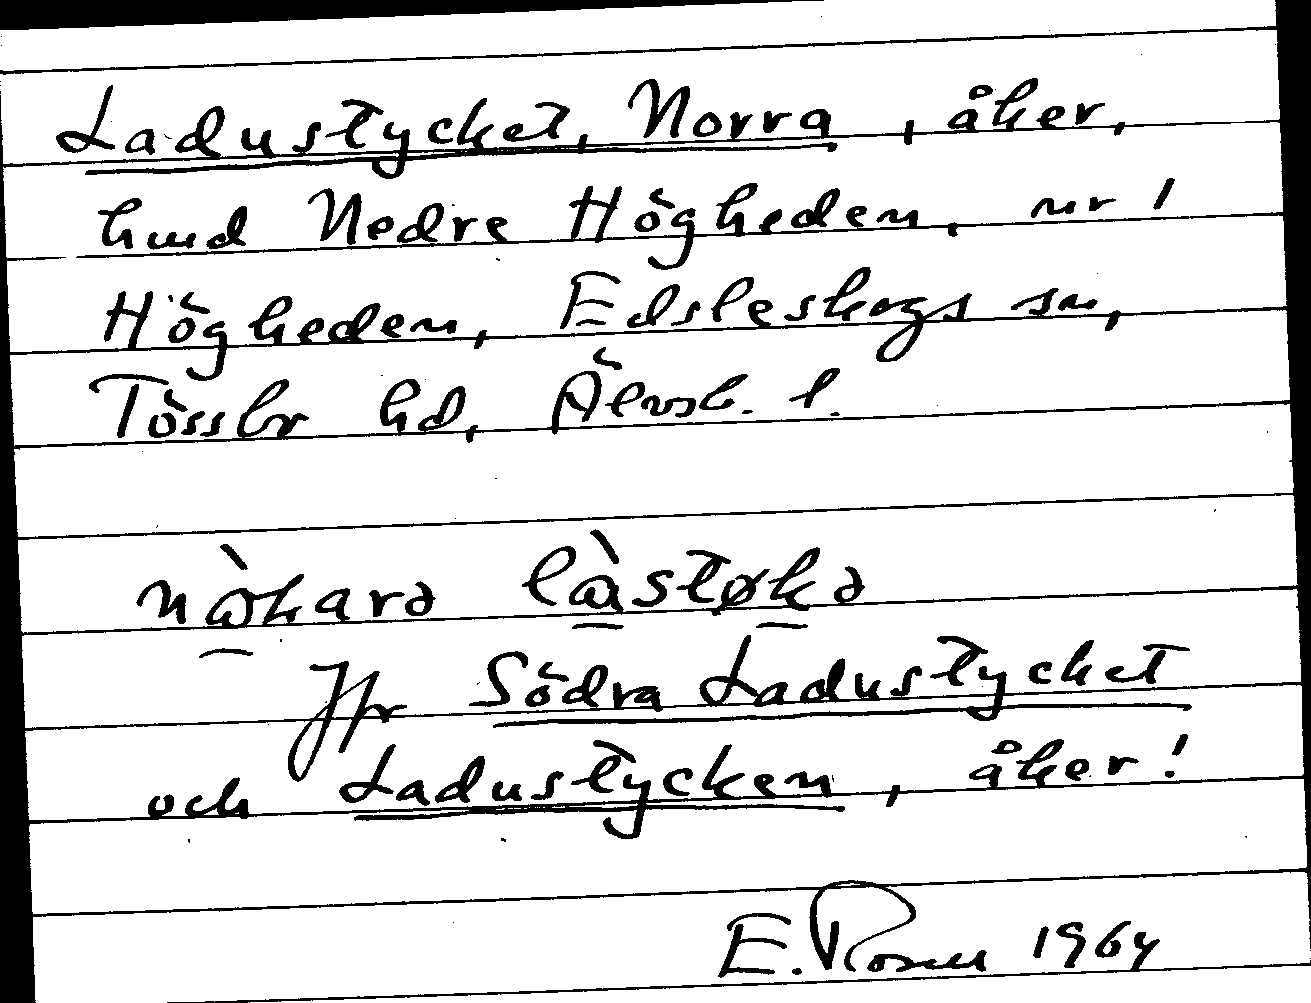 Ladustycket, Norra, åker,
hmd Nedre Högheden, nr 1
Högheden, Edsleskogs sn,
Tössbr hd, Älvsb. l.
nɷ̀karə lɑ̀støkə
Jfr Södra Ladustycket
och Ladustycken, åker!
E. Rosun 1964